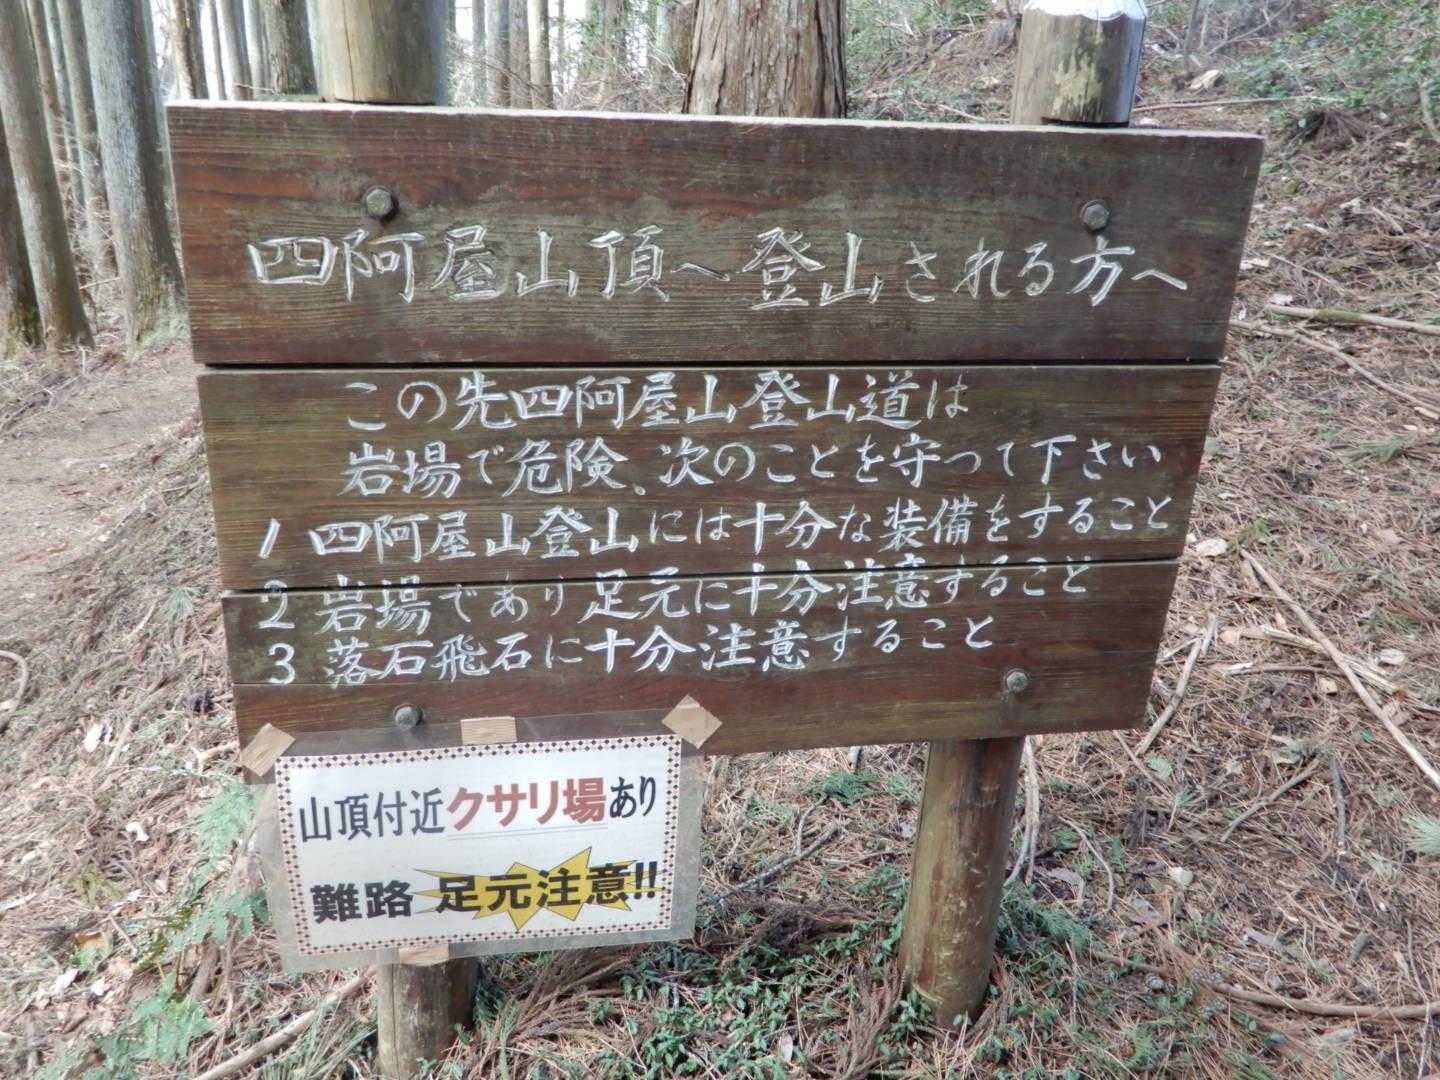 四阿屋山頂へ登山される方へ
この先四阿屋山登山道は
岩場で危険、次のことを守って下さい
1 四阿屋山登山には十分な装備をすること
2 岩場であり足元に十分注意すること
3 落石飛石に十分注意すること
山頂付近クサリ場あり
難路 足元注意!!